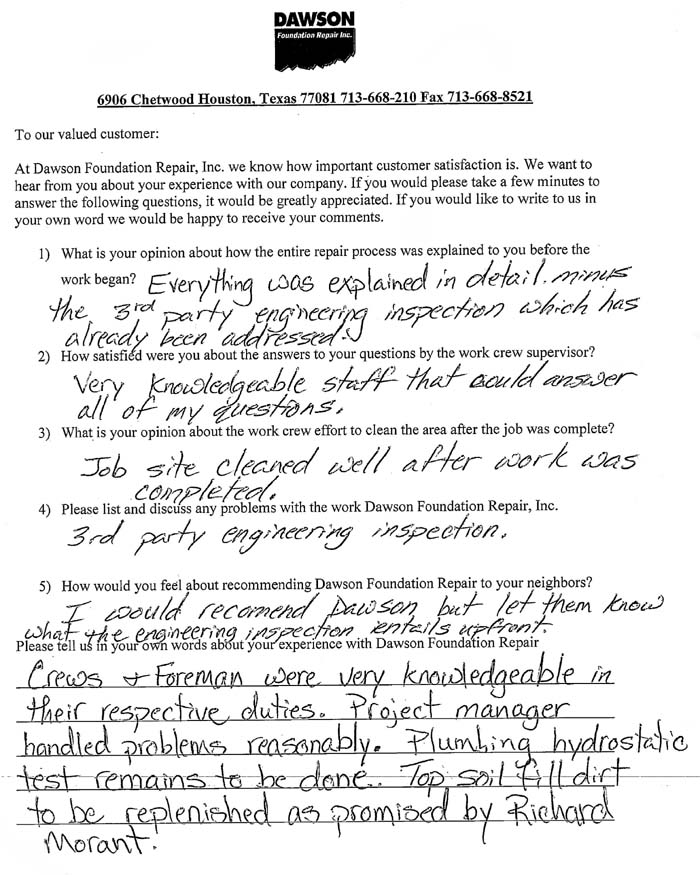 DAWSON
Foundation Repair Inc.
6906 Chetwood Houston, Texas 77081 713-668-210 Fax 713-668-8521
To our valued customer:
At Dawson Foundation Repair, Inc. we know how important customer satisfaction is. We want to
hear from you about your experience with our company. If you would please take a few minutes to
answer the following questions, it would be greatly appreciated. If you would like to write to us in
your own word we would be happy to receive your comments.
1) What is your opinion about how the entire repair process was explained to you before the
work began? Everything was explained in detail. minus
the 3rd party engineering inspection which has
already been addressed.
2) How satisfied were you about the answers to your questions by the work crew supervisor?
Very knowledgeable staff that could answer
all of my questions.
3) What is your opinion about the work crew effort to clean the area after the job was complete?
Job site cleaned well after work was
completed.
4) Please list and discuss any problems with the work Dawson Foundation Repair, Inc.
3rd party engineering inspection.
5) How would you feel about recommending Dawson Foundation Repair to your neighbors?
I would recomend Dawson, but let them know
what the engineering inspection entails upfront.
Please tell us in your own words about your experience with Dawson Foundation Repair
Crews & Foreman were very knowledgeable in
their respective duties. Project manager
handled problems reasonably. Plumbing hydrostatic
test remains to be done. Top soil fill dirt
to be replenished as promised by Richard
Morant.